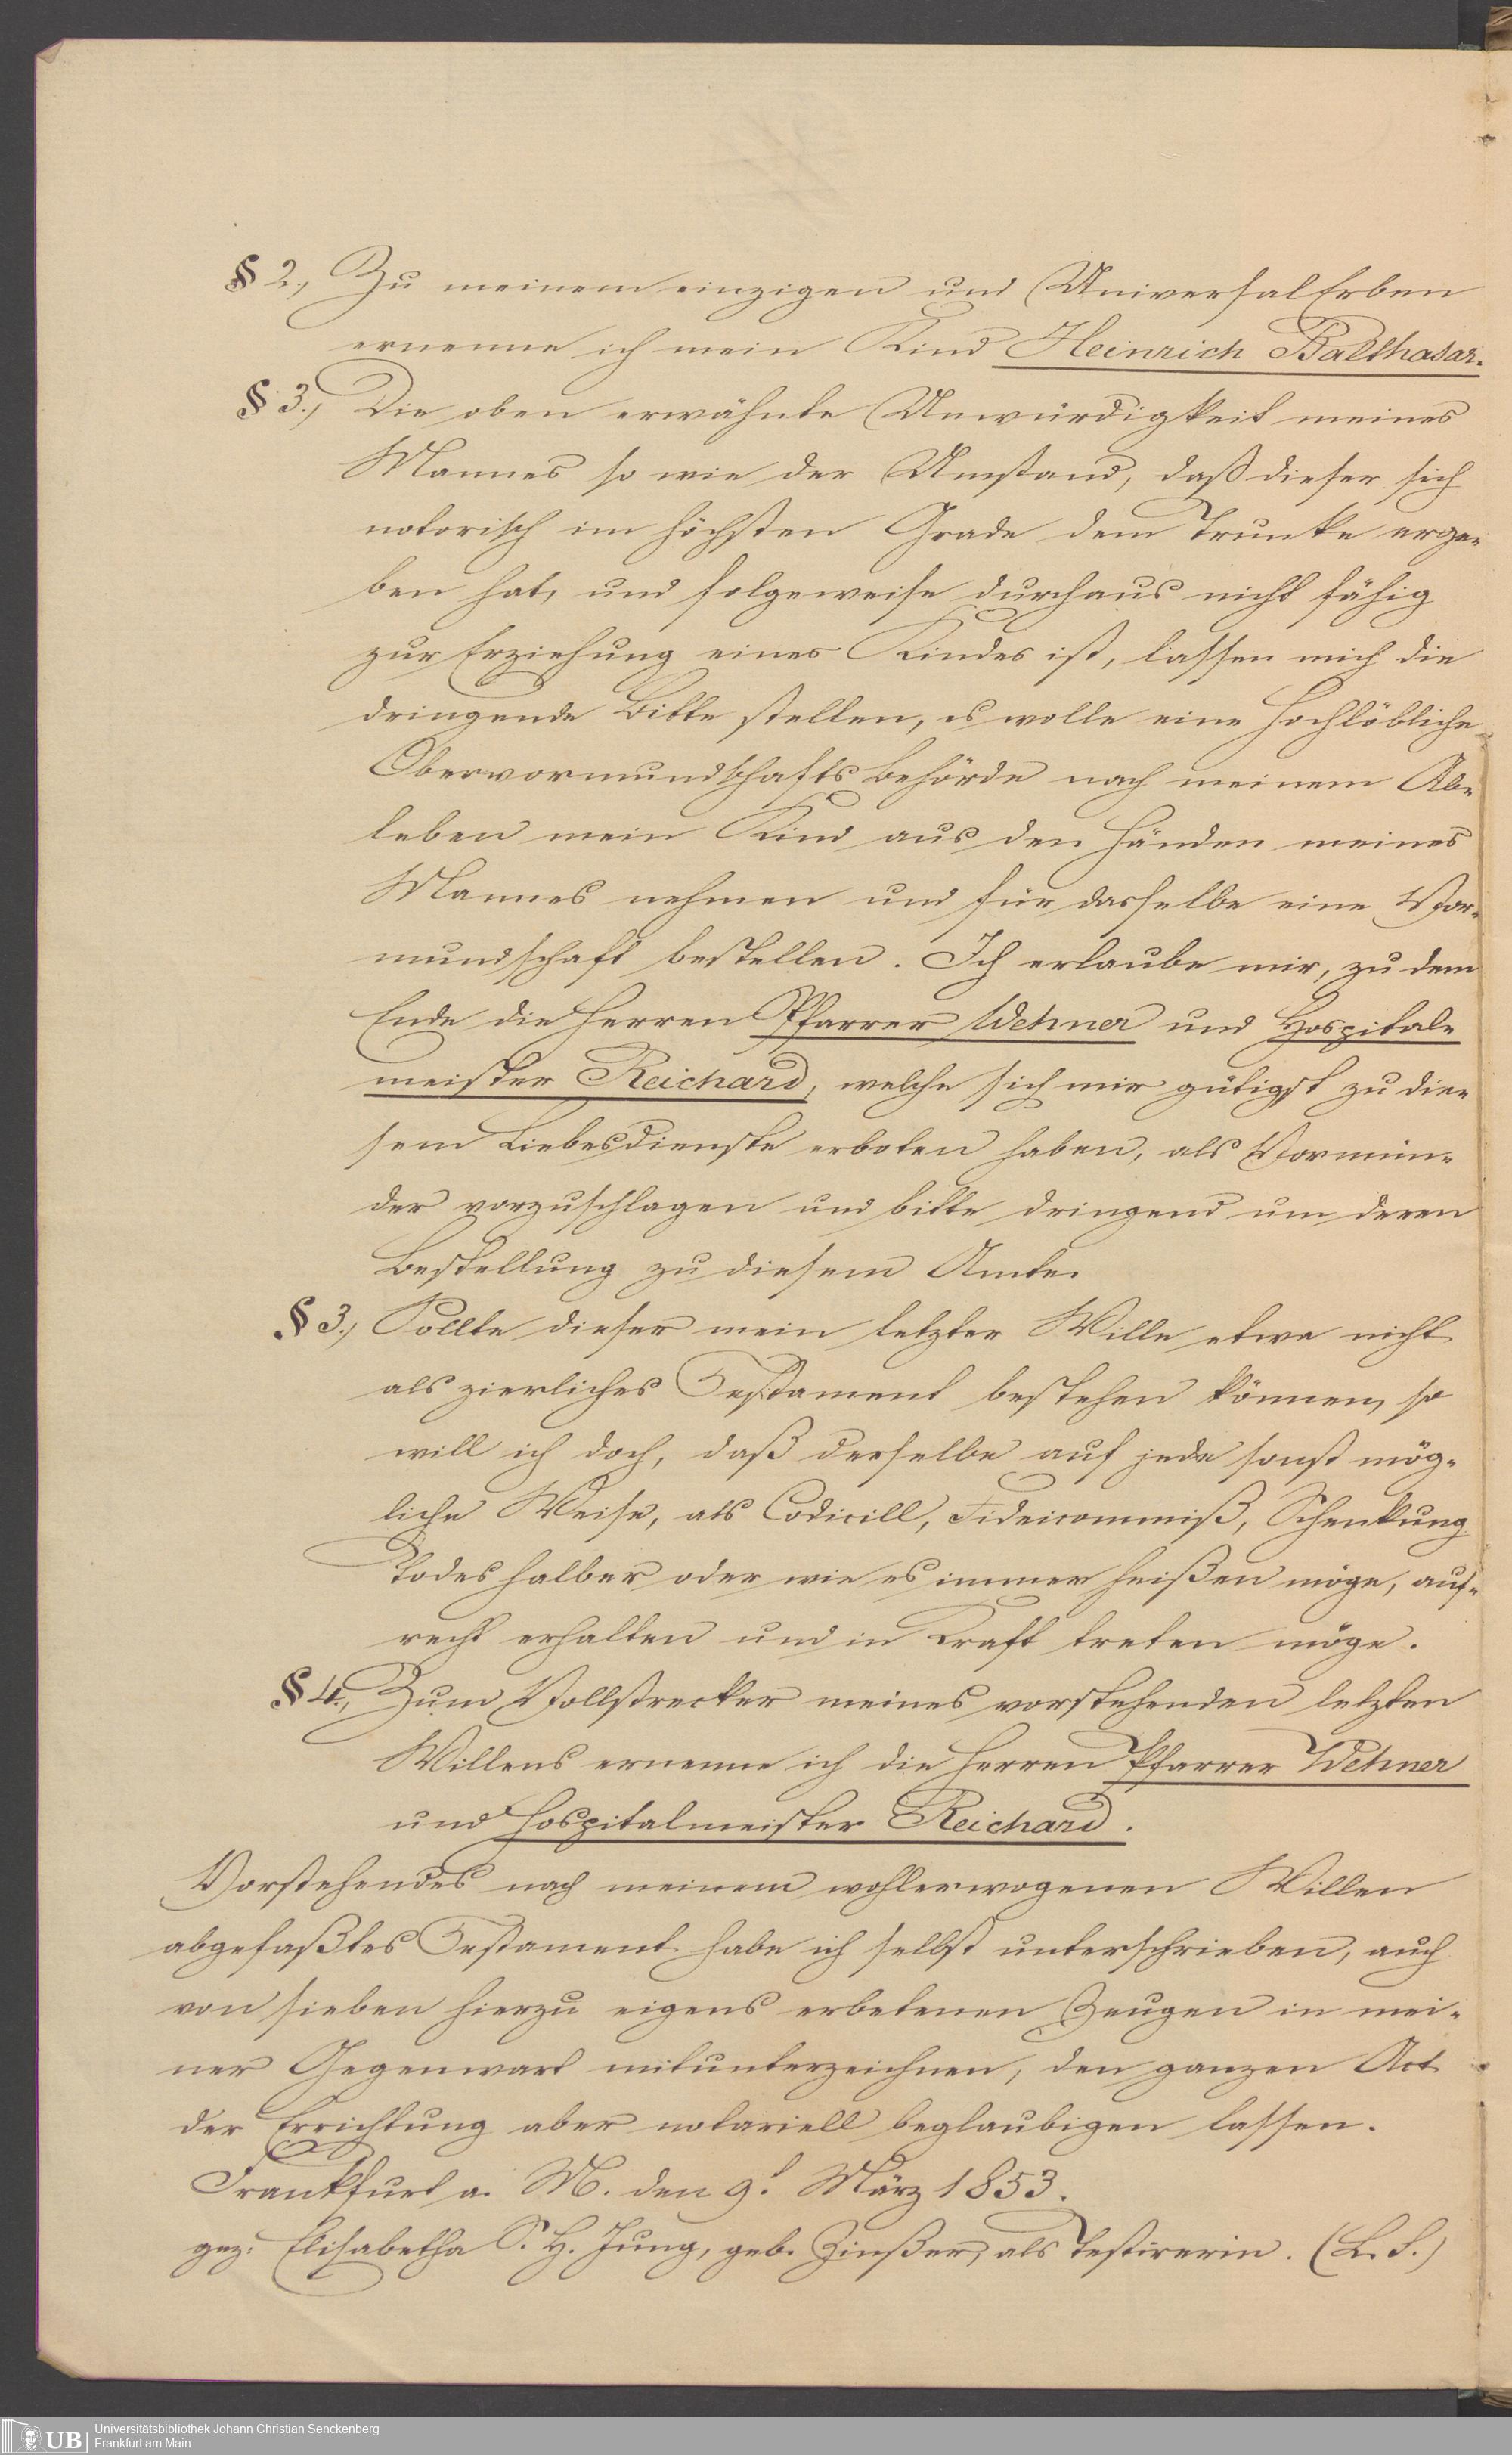 § 2., Zu meinem einzigen und UniversalErben
ernenne ich mein Kind Heinrich Balthasar.
§ 3., Die oben erwähnte Unwürdigkeit meines
Mannes so wie der Umstand, daß dieser sich
notorisch im höchsten Grade dem Trunke erge-
ben hat, und folgeweise durchaus nicht fähig
zur Erziehung eines Kindes ist, lassen mich die
dringende Bitte stellen, es wolle eine Hochlöbliche
Obervormundschafts Behörde nach meinem Ab-
leben mein Kind aus den Händen meines
Mannes nehmen und für dasselbe eine Vor-
mundschaft bestellen. Ich erlaube mir, zu dem
Ende die Herren Pfarrer Wehner und Hospital-
meister Reichard, welche sich mir gütigst zu die-
sem Liebesdienste erboten haben, als Vormün-
der vorzuschlagen und bitte dringend um deren
Bestellung zu diesem Amte.
§ 3., Sollte dieser mein letzter Wille etwa nicht
als zierliches Testament bestehen können, so
will ich doch, daß derselbe auf jede sonst mög-
liche Weise, als Codicill, Fideicommiß, Schenkung
Todes halber oder wie es immer heißen möge, auf-
recht erhalten und in Kraft treten möge.
§ 4., Zum Vollstrecker meines vorstehenden letzten
Willens ernenne ich die Herren Pfarrer Wehner
und Hospitalmeister Reichard.
Vorstehendes nach meinem wohlerwogenen Willen
abgefaßtes Testament habe ich selbst unterschrieben, auch
von sieben hierzu eigens erbetenen Zeugen in mei-
ner Gegenwart mitunterzeichnen, den ganzen Act
der Errichtung aber notariell beglaubigen lassen.
Frankfurt a. M. den 9t März 1853.
gez. Elisabetha S. H. Jung, geb. Zinßer, als Testirerin. (L. S.)
UB Universitätsbibliothek Johann Christian Senckenberg
Frankfurt am Main